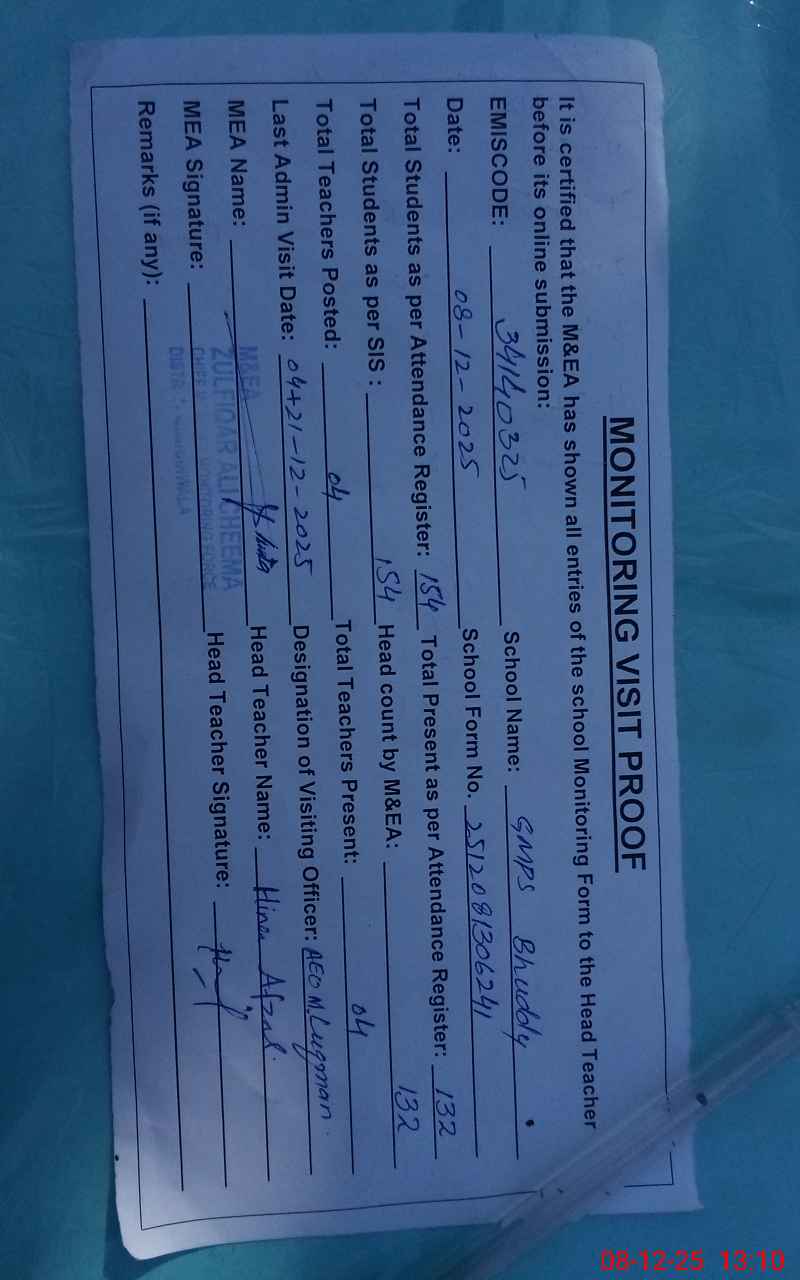 MONITORING VISIT PROOF
It is certified that the M&EA has shown all entries of the school Monitoring Form to the Head Teacher
before its online submission:
EMISCODE: 34140325 School Name: GMPS Bhuddly
Date: 08-12-2025 School Form No. 2512081306241
Total Students as per Attendance Register: 154 Total Present as per Attendance Register: 132
Total Students as per SIS : 154 Head count by M&EA: 132
Total Teachers Posted: 04 Total Teachers Present: 04
Last Admin Visit Date: 04+21-12-2025 Designation of Visiting Officer: AEO M.Luqman.
MEA Name: Head Teacher Name: Hina Afzal.
M&EA
ZULFIQAR ALI CHEEMA
MONITORING FORCE
MEA Signature: Head Teacher Signature:
Remarks (if any):
08-12-25 13:10